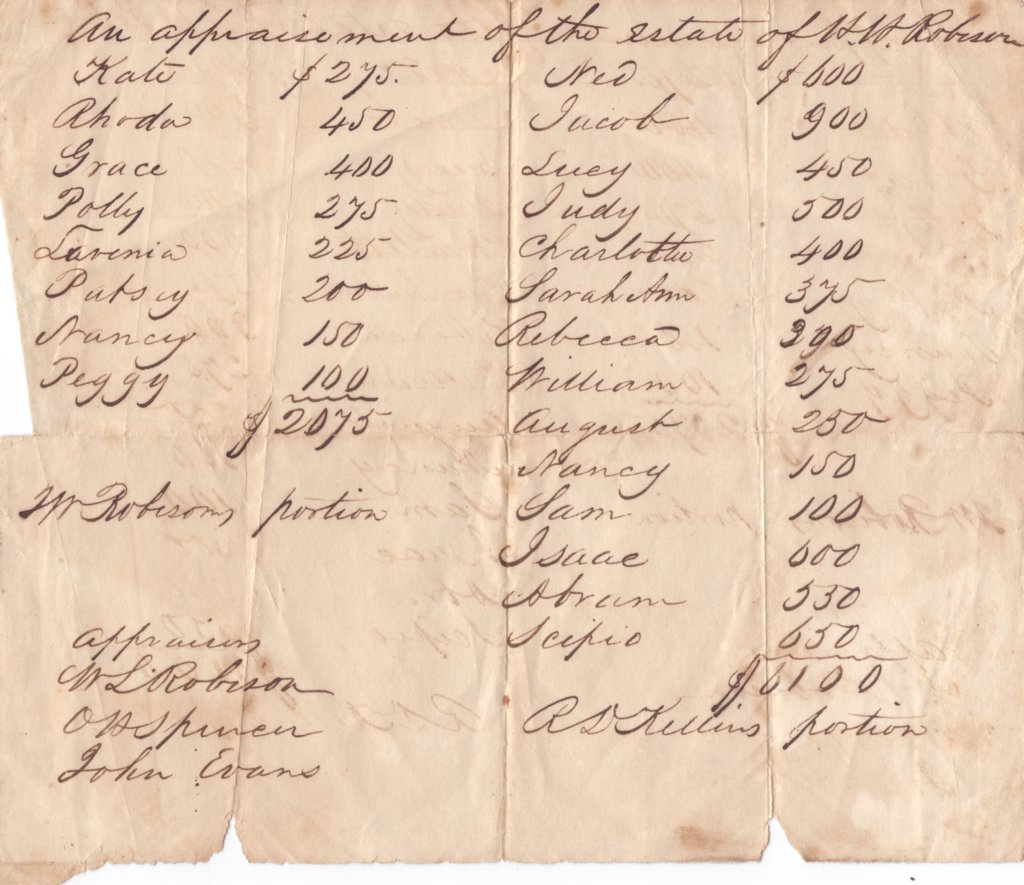 An appraisement of the estate of W. W. Robison
Kate $275.
Rhoda 450
Grace 400
Polly 275
Lavenia 225
Patsey 200
Nancy 150
Peggy 100
$2075
JW Robisons portion
appraisers
W L Robison
O H Spencer
John Evans
Ned $600
Jacob 900
Lucy 450
Judy 500
Charlotte 400
Sarah Ann 375
Rebecca 300
William 275
August 250
Nancy 150
Sam 100
Isaac 600
Abram 550
Scipio 650
$6100
R D Kellins portion